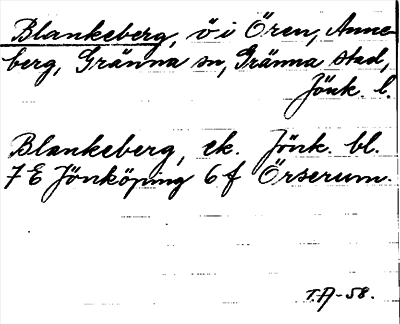 Blankeberg, ö i Ören, Anne-
berg, Gränna sn, Gränna stad,
Jönk. l.
Blankeberg, ek. Jönk. bl.
7 E Jönköping 6 f Örserum.
T.A-58.